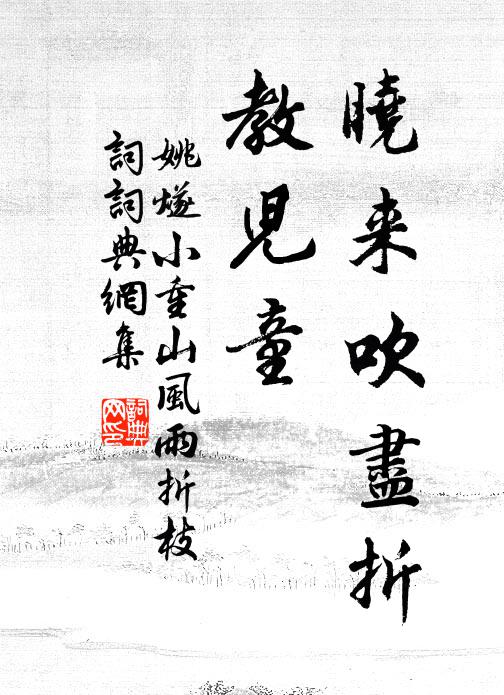 曉来吹盡折
教兒童
姚燧小重山風雨折枝
詞詞典網集
詞典网印